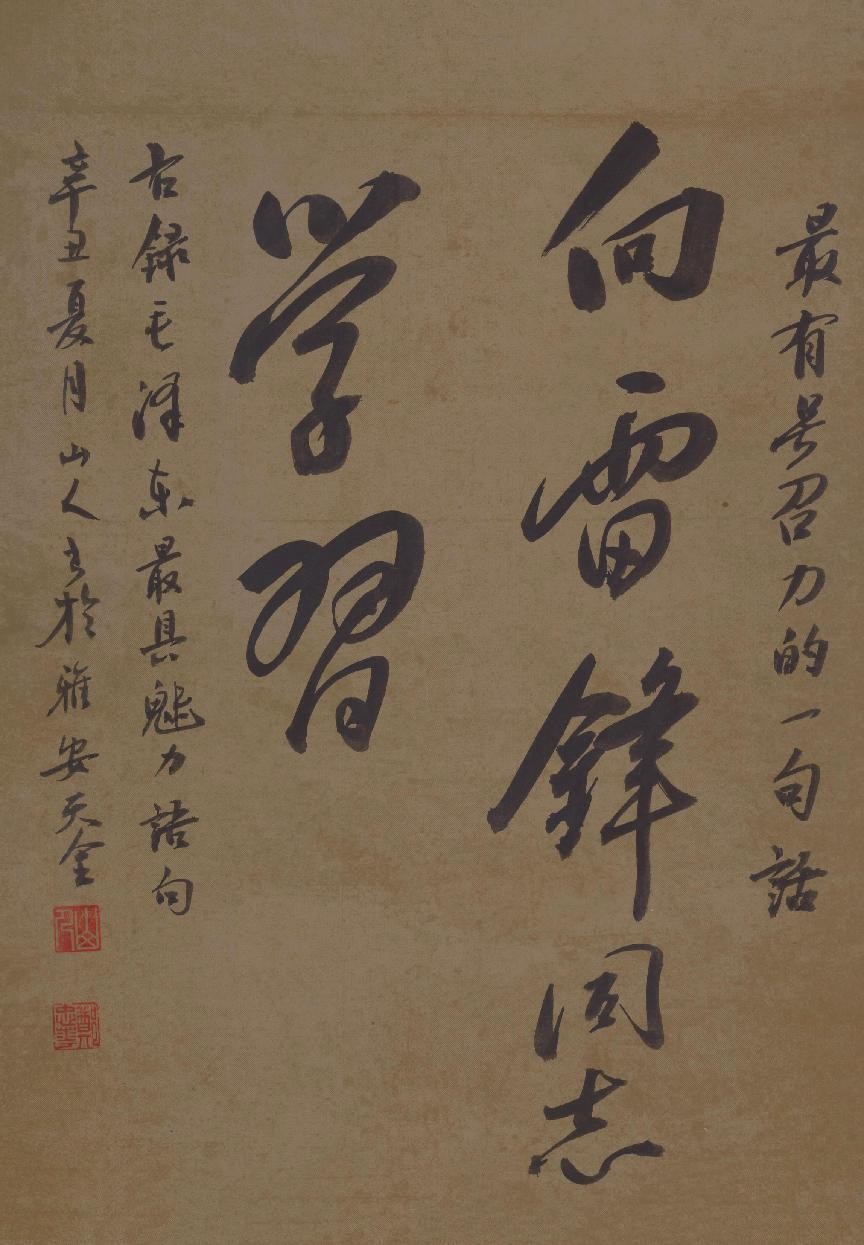 最有号召力的一句話
向雷鋒同志
学習
右録毛澤东最具魅力語句
辛丑夏月山人书於雅安天全